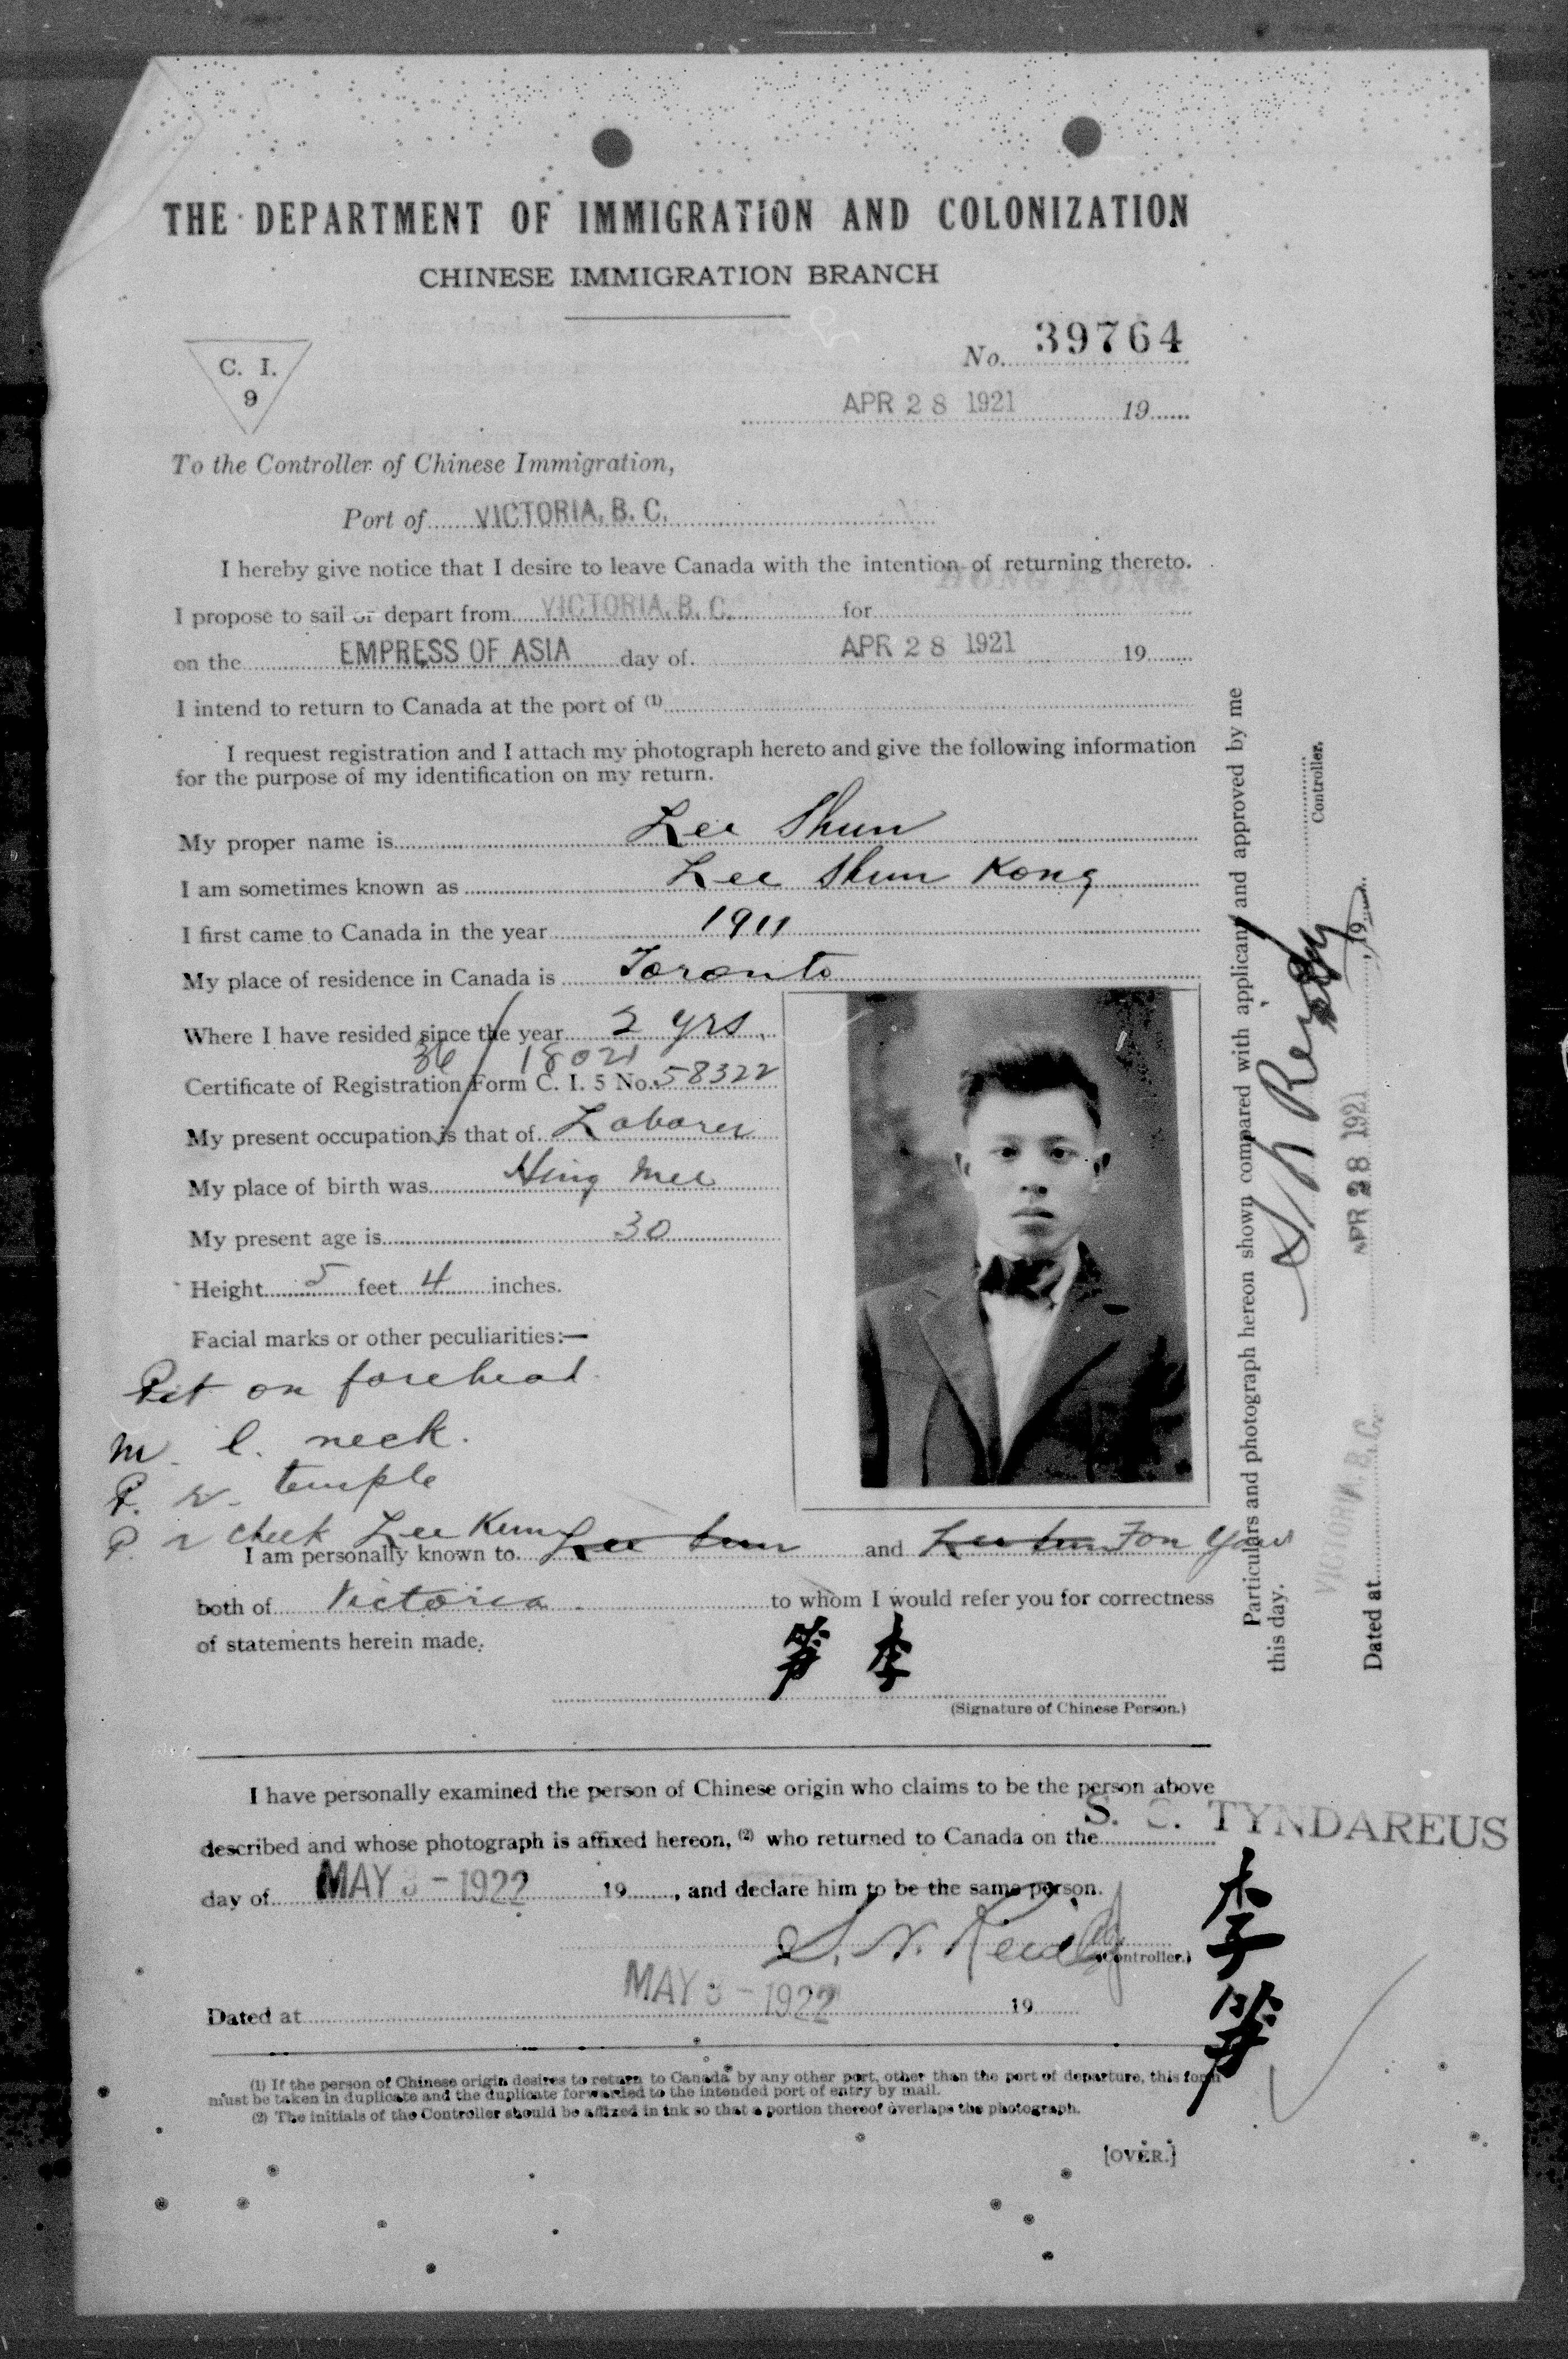 THE DEPARTMENT OF IMMIGRATION AND COLONIZATION
CHINESE IMMIGRATION BRANCH
C. I.
9
No. 39764
APR 28 1921 19
To the Controller of Chinese Immigration,
Port of VICTORIA, B. C.
I hereby give notice that I desire to leave Canada with the intention of returning thereto.
I propose to sail or depart from VICTORIA, B. C. for HONG KONG
on the EMPRESS OF ASIA day of APR 28 1921 19
I intend to return to Canada at the port of (1)
I request registration and I attach my photograph hereto and give the following information
for the purpose of my identification on my return.
My proper name is Lee Shun
I am sometimes known as Lee Shun Kong
I first came to Canada in the year 1911
My place of residence in Canada is Toronto
Where I have resided since the year 2 yrs.
36 / 18021
Certificate of Registration Form C. I. 5 No. 58322
My present occupation is that of Laborer
My place of birth was Hing Mee
My present age is 30
Height 5 feet 4 inches.
Facial marks or other peculiarities:—
Pit on forehead
m. l. neck.
P. r. temple
P. r cheek Lee Kum
I am personally known to Lee and Lee Fon Yow
both of Victoria to whom I would refer you for correctness
of statements herein made.
笋 李
(Signature of Chinese Person.)
I have personally examined the person of Chinese origin who claims to be the person above
described and whose photograph is affixed hereon, (2) who returned to Canada on the S. S. TYNDAREUS
day of MAY 3 - 1922 19, and declare him to be the same person.
S. N. Reilly
(Controller.)
Dated at MAY 3 - 1922 19
李笋
(1) If the person of Chinese origin desires to return to Canada by any other port, other than the port of departure, this form
must be taken in duplicate and the duplicate forwarded to the intended port of entry by mail.
(2) The initials of the Controller should be affixed in ink so that a portion thereof overlaps the photograph.
[OVER.]
Particulars and photograph hereon shown compared with applicant and approved by me
this day.
S N Reilly
Controller.
Dated at VICTORIA, B. C. APR 28 1921, 19